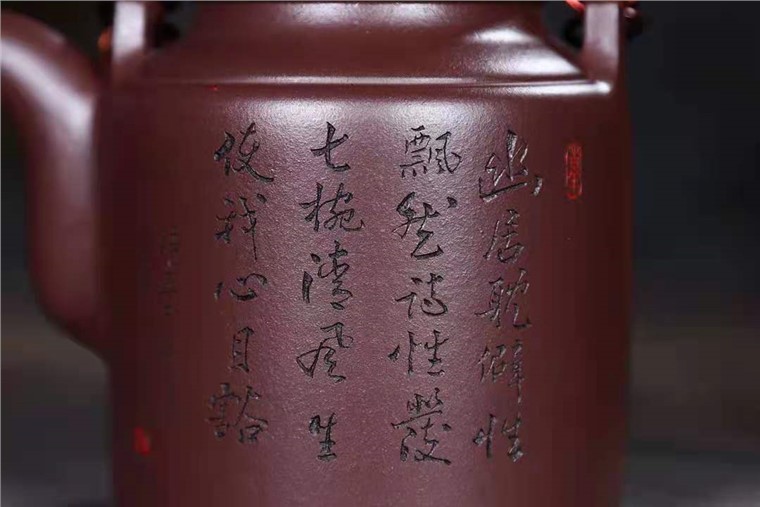 幽居耽僻性
飄然詩性發
七椀清風生
使我心目豁